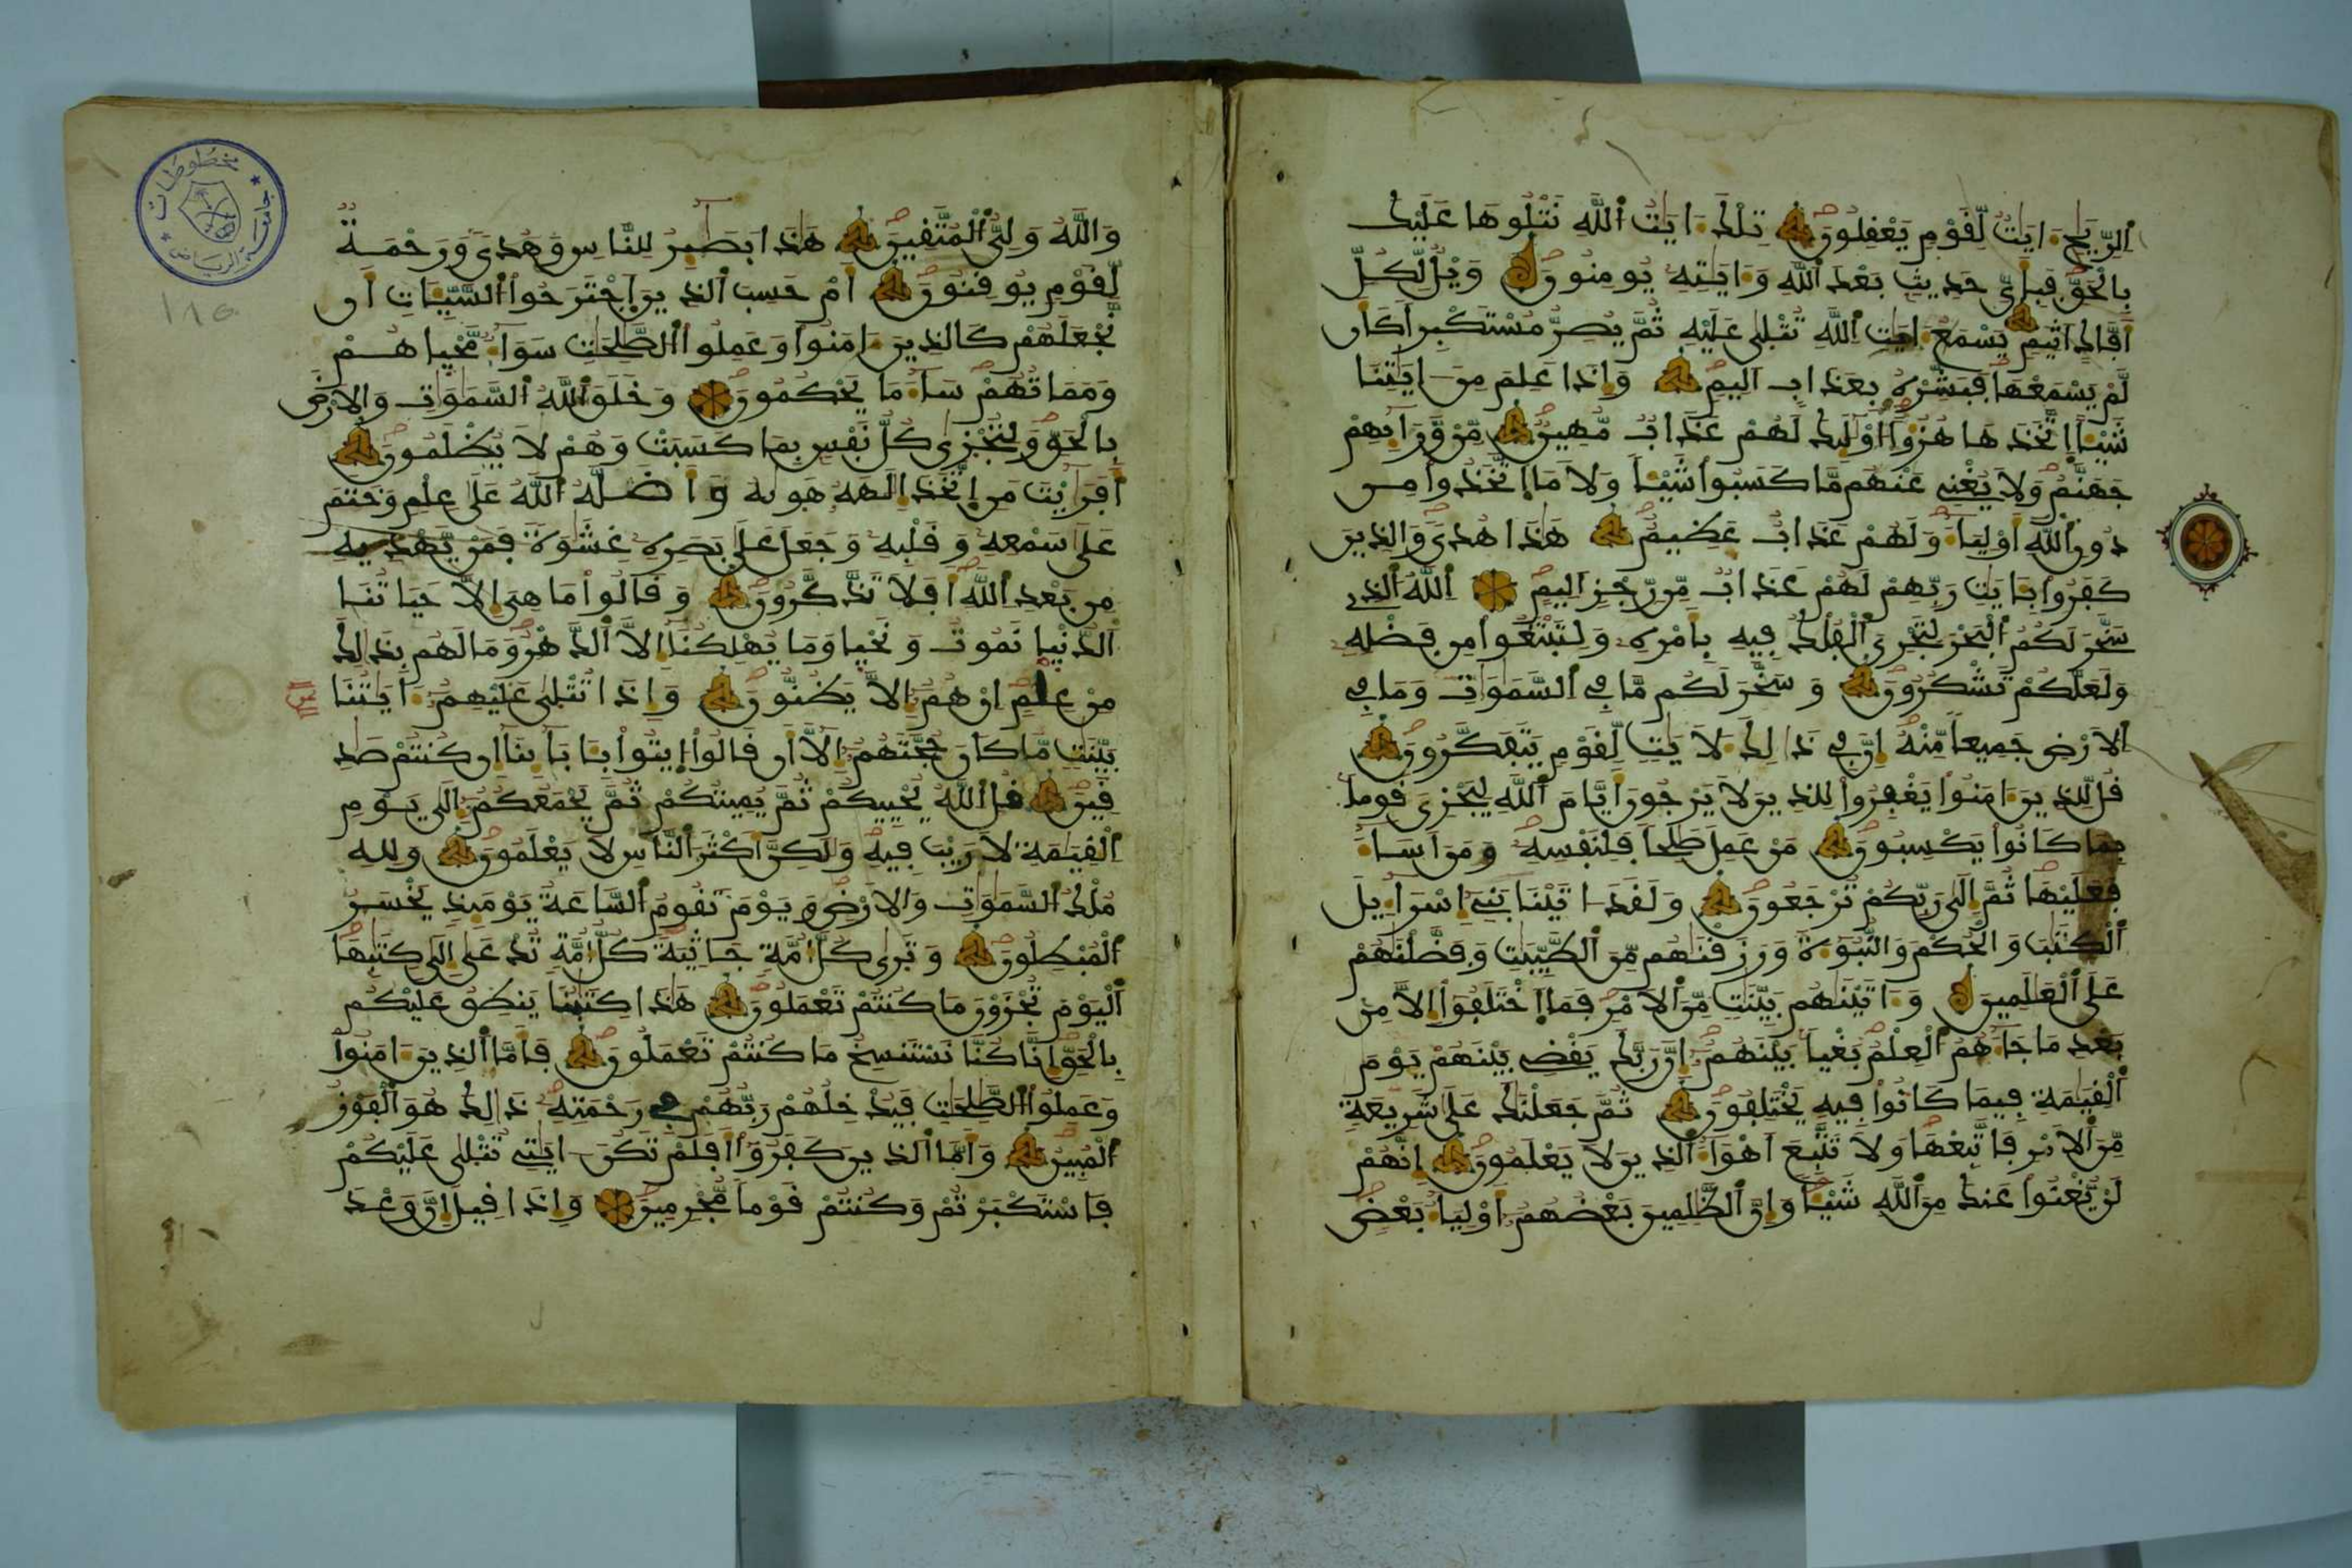 الريح ايت لقوم يعقلون تلك ايت الله نتلوها عليك
بالحق فبأي حديث بعد الله وءايته يومنون ويل لكل
أفاك أثيم يسمع ءايت الله تتلى عليه ثم يصر مستكبرا كان
لم يسمعها فبشره بعذاب اليم وإذا علم من ءايتنا
شيئا اتخذها هزؤا أولئك لهم عذاب مهين من ورآئهم
جهنم ولا يغني عنهم ما كسبوا شيئا ولا ما اتخذوا من
دون الله أولياء ولهم عذاب عظيم هذا هدى والذين
كفروا بئايت ربهم لهم عذاب من رجز اليم الله الذي
سخر لكم البحر لتجري الفلك فيه بأمره ولتبتغوا من فضله
ولعلكم تشكرون وسخر لكم ما في السموات وما في
الارض جميعا منه إن في ذلك لأيت لقوم يتفكرون
قل للذين ءامنوا يغفروا للذين لا يرجون أيام الله ليجزي قوما
بما كانوا يكسبون من عمل صلحا فلنفسه ومن أساء
فعليها ثم إلى ربكم ترجعون ولقد ءاتينا بني إسرآئيل
الكتب والحكم والنبوءة ورزقنهم من الطيبت وفضلنهم
على العلمين وءاتينهم بينت من الأمر فما اختلفوا إلا من
بعد ما جاءهم العلم بغيا بينهم إن ربك يقضي بينهم يوم
القيمة فيما كانوا فيه يختلفون ثم جعلنك على شريعة
من الأمر فاتبعها ولا تتبع أهواء الذين لا يعلمون إنهم
لن يغنوا عنك من الله شيئا وإن الظلمين بعضهم أولياء بعض
والله ولي المتقين هذا بصئر للناس وهدى ورحمة
لقوم يوقنون أم حسب الذين اجترحوا السيئات أن
نجعلهم كالذين ءامنوا وعملوا الصلحت سواء محياهم
ومماتهم ساء ما يحكمون وخلق الله السموات والارض
بالحق ولتجزى كل نفس بما كسبت وهم لا يظلمون
أفرأيت من اتخذ إلهه هويه وأضله الله على علم وختم
على سمعه وقلبه وجعل على بصره غشوة فمن يهديه
من بعد الله أفلا تذكرون وقالوا ما هي إلا حياتنا
الدنيا نموت ونحيا وما يهلكنا إلا الدهر وما لهم بذلك
من علم إن هم إلا يظنون وإذا تتلى عليهم ءايتنا
بينت ما كان حجتهم إلا أن قالوا ايتوا بئابائنا إن كنتم صد
قين قل الله يحييكم ثم يميتكم ثم يجمعكم إلى يوم
القيمة لا ريب فيه ولكن أكثر الناس لا يعلمون ولله
ملك السموات والارض ويوم تقوم الساعة يومئذ يخسر
المبطلون وترى كل أمة جاثية كل أمة تدعى إلى كتبها
اليوم تجزون ما كنتم تعملون هذا كتبنا ينطق عليكم
بالحق إنا كنا نستنسخ ما كنتم تعملون فأما الذين ءامنوا
وعملوا الصلحت فيدخلهم ربهم في رحمته ذلك هو الفوز
المبين وأما الذين كفروا أفلم تكن ءايتي تتلى عليكم
فاستكبرتم وكنتم قوما مجرمين وإذا قيل إن وعد
مخطوطات
جامعة الرياض